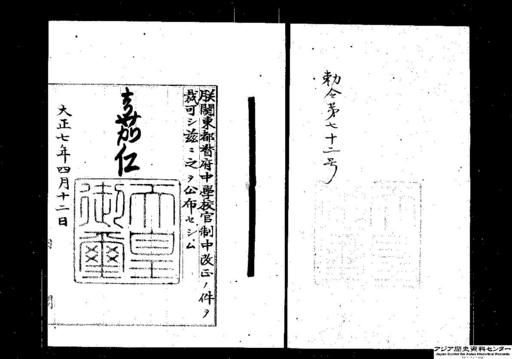 勅令第七十二号
朕關東都督府中學校官制中改正ノ件ヲ
裁可シ茲ニ之ヲ公布セシム
嘉仁
天皇御璽
大正七年四月十二日
アジア歴史資料センター
Japan Center for Asian Historical Records